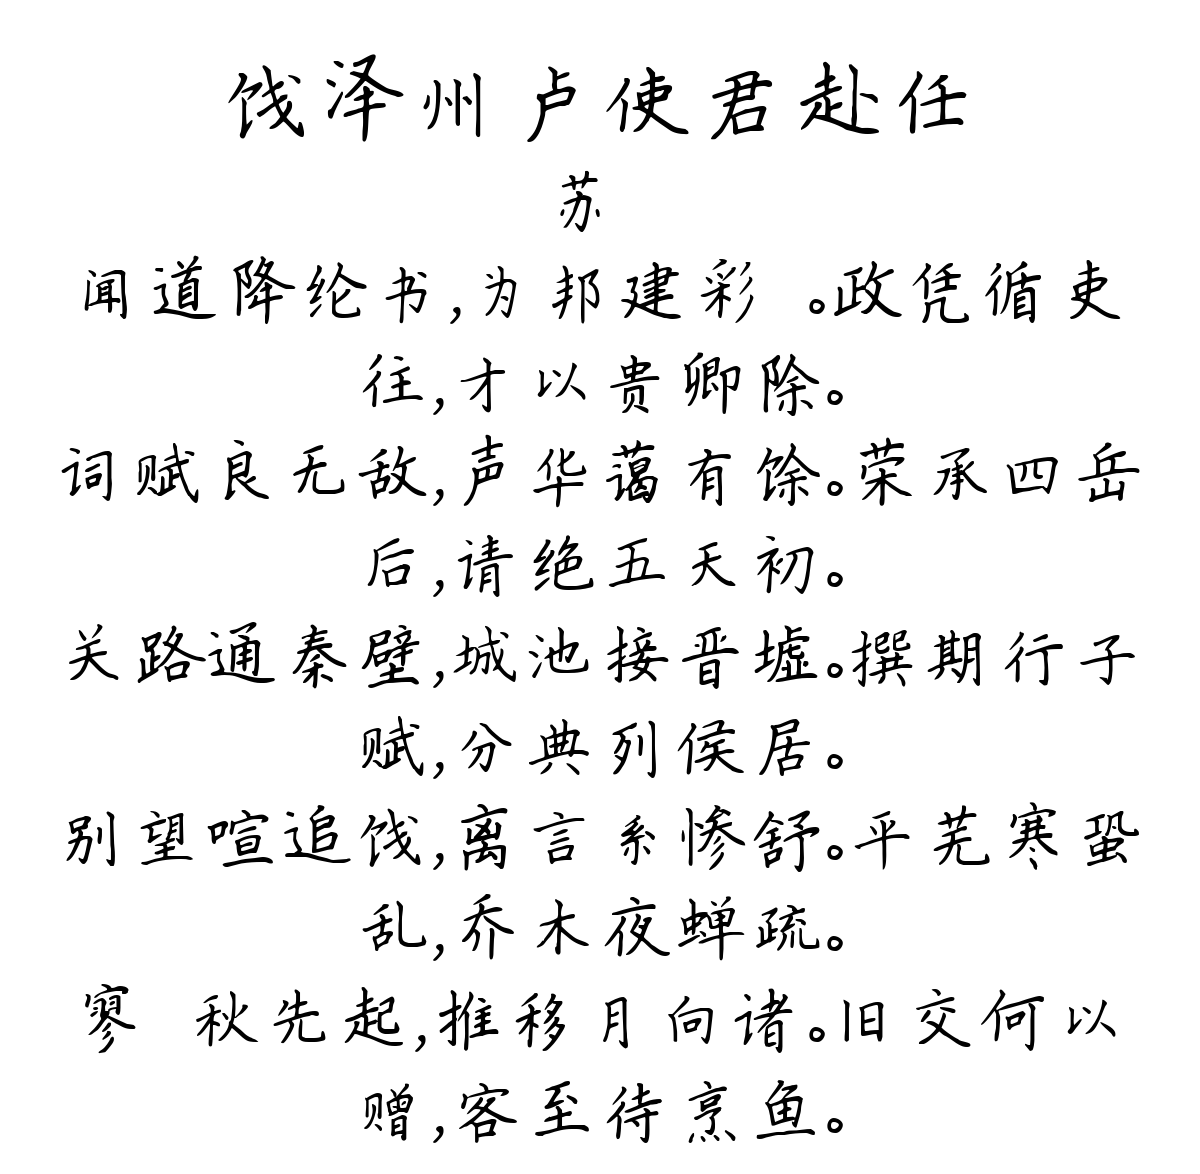 饯泽州卢使君赴任
苏
闻道降纶书,为邦建彩 。政凭循吏
往,才以贵卿除。
词赋良无敌,声华蔼有馀。荣承四岳
后,请绝五天初。
关路通秦壁,城池接晋墟。撰期行子
赋,分典列侯居。
别望喧追饯,离言系惨舒。平芜寒蛩
乱,乔木夜蝉疏。
寥 秋先起,推移月向诸。旧交何以
赠,客至待烹鱼。